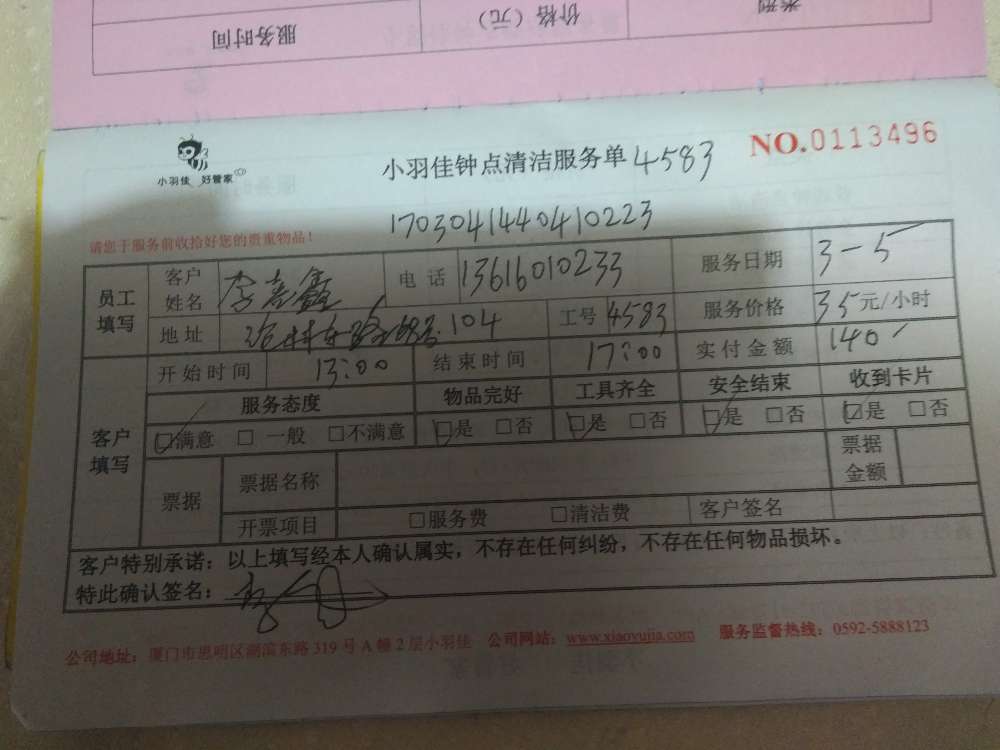 类别 价格（元） 服务时间
小羽佳 好管家
小羽佳钟点清洁服务单 4583
NO.0113496
1703041440410223
请您于服务前收拾好您的贵重物品！
员工填写 客户姓名 李 鑫 电话 13616010233 服务日期 3-5
地址 104 工号 4583 服务价格 35元/小时
开始时间 13:00 结束时间 17:00 实付金额 140
客户填写 服务态度 物品完好 工具齐全 安全结束 收到卡片
☑满意 □一般 □不满意 ☑是 □否 ☑是 □否 ☑是 □否 ☑是 □否
票据 票据名称 票据金额
开票项目 □服务费 □清洁费 客户签名
客户特别承诺：以上填写经本人确认属实，不存在任何纠纷，不存在任何物品损坏。
特此确认签名：
公司地址：厦门市思明区湖滨东路319号A幢2层小羽佳 公司网站：www.xiaoyujia.com 服务监督热线：0592-5888123